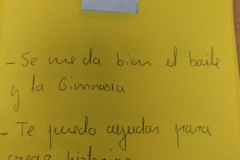 - Se me da bien el baile
y la Gimnasia
- Te puedo ayudar para
crear historias